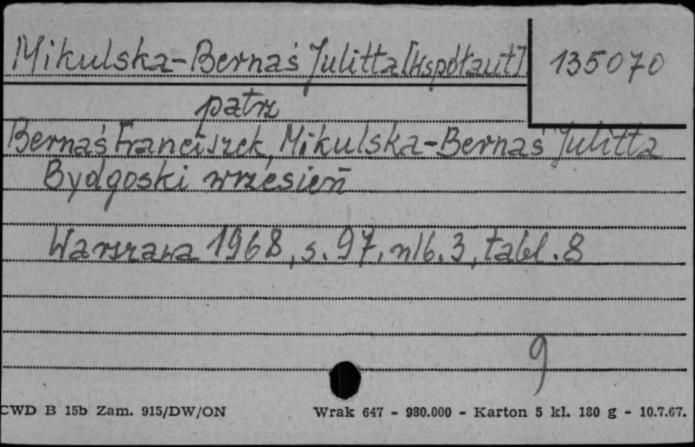 Mikulska-Bernaś Julitta [współaut] 135070
patrz
Bernaś Franciszek, Mikulska-Bernaś Julitta
Bydgoski wrzesień
Warszawa 1968, s. 97, nlb. 3, tabl. 8
9
CWD B 15b Zam. 915/DW/ON Wrak 647 - 980.000 - Karton 5 kl. 180 g - 10.7.67.